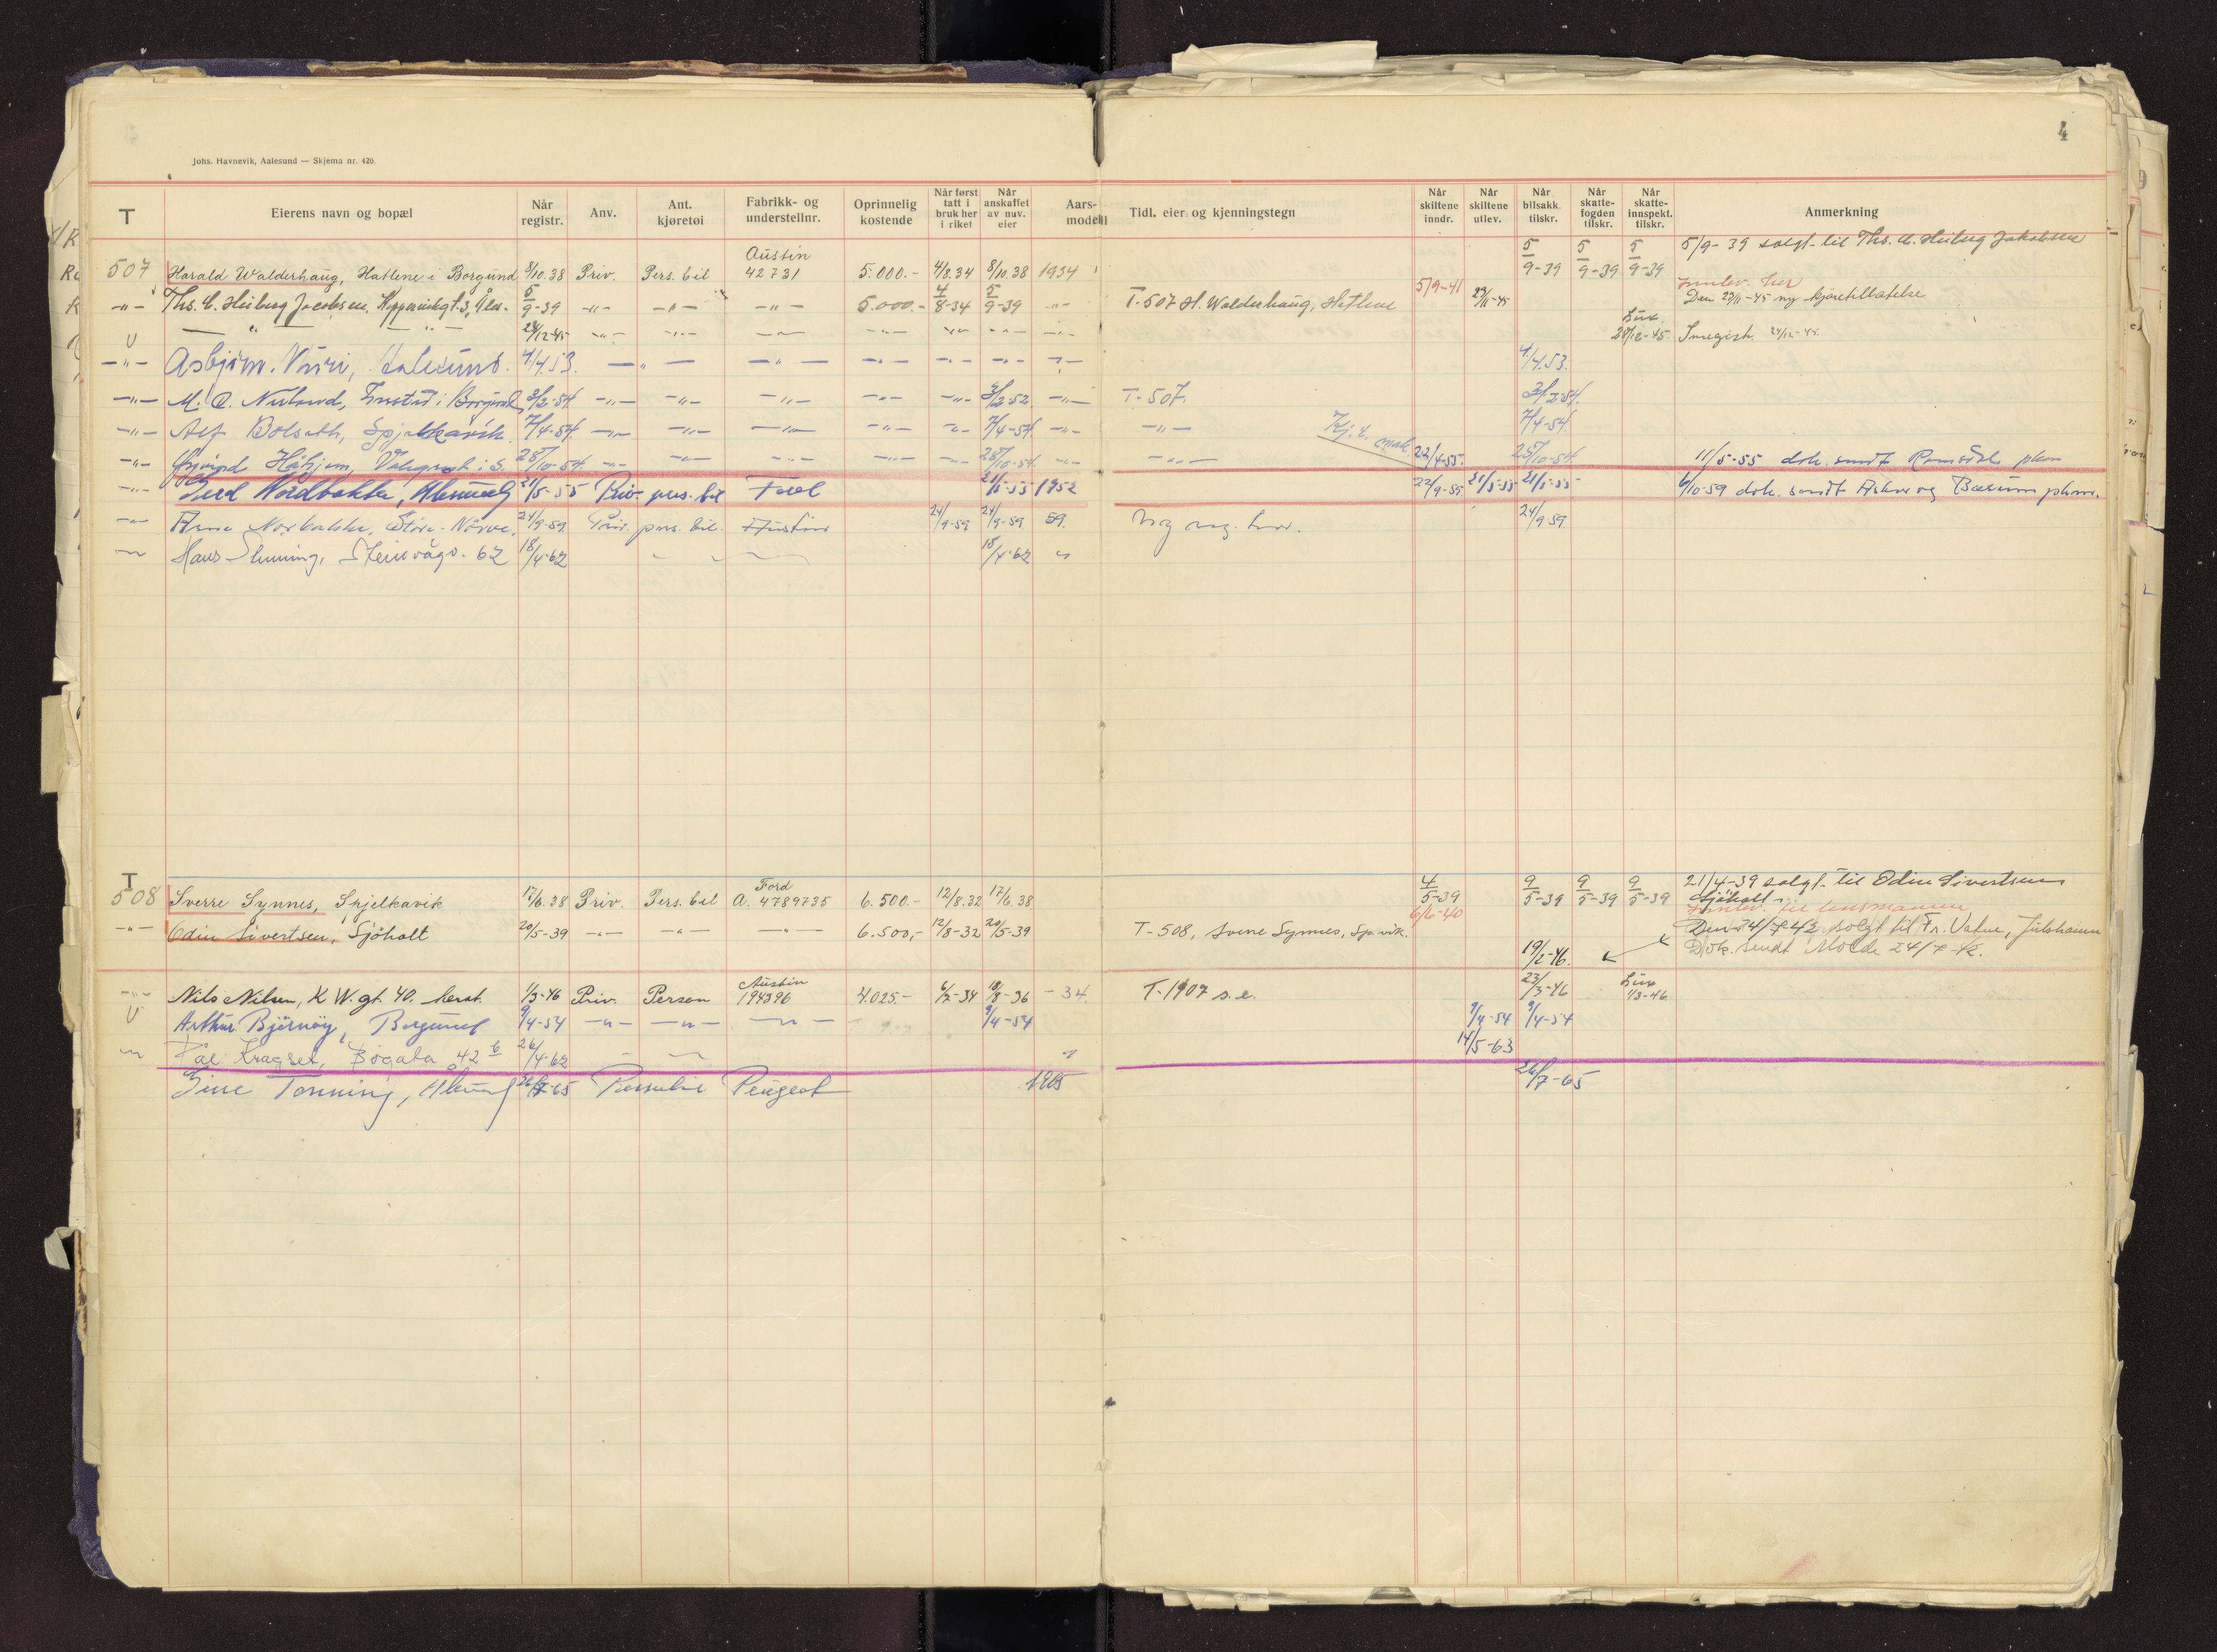 4
Johs. Havnevik, Aalesund — Skjema nr. 420.
T | Eierens navn og bopæl | Når registr. | Anv. | Ant. kjøretøi | Fabrikk- og understellnr. | Oprinnelig kostende | Når først tatt i bruk her i riket | Når anskaffet av nuv. eier | Aars-modell | Tidl. eier og kjenningstegn | Når skiltene inndr. | Når skiltene utlev. | Når bilsakk. tilskr. | Når skatte-fogden tilskr. | Når skatte-innspekt. tilskr. | Anmerkning
507 Harald Walderhaug, Hatlene i Borgund 8/10.38 Priv. Pers. bil Austin 42731 5.000.- 4/8.34 8/10.38 1934 5/9-39 5/9-39 5/9-39 5/9-39 solgt til Ths. C. Heiberg Jakobsen
-"- Ths. C. Heiberg Jacobsen, 3, 5/9-39 -"- -"- -"- 5.000.- 4/8-34 5/9-39 -"- T-507 H. Walderhaug, Hatlene 5/9-41 23/11-45 Innlev. her
Den 23/11-45 ny kjøretillatelse
-"- -"- 28/12-45 -"- -"- -"- -"- -"- -"- 28/12-45 Innregistr. 24/12-45.
-"- Asbjørn 4/4.53. -"- -"- -"- -"- -"- -"- 4/4.53.
-"- M. O. i Borgund 3/2-54 -"- -"- -"- -"- -"- 3/2-52 -"- T-507. 3/2-54.
-"- Alf Bolseth, Spjelkavik. 7/4-54. -"- -"- -"- -"- -"- 7/4-54 -"- -"- 7/4-54.
-"- Håhjem, i S. 25/10-54. -"- -"- -"- -"- -"- 25/10-54. -"- -"- 22/4-55. 25/10-54 11/5-55 dok. sendt Romsdal pkm
-"- Nordbakke, Ålesund 21/5-55 Priv. pers. bil Ford 21/5-55 1952 22/9-59 21/5-55 21/5-55 6/10-59 dok. sendt Asker og Bærum pkm.
-"- Nørve 24/9-59 Priv. pers. bil. Austin 24/9-59 24/9-59 59. 24/9 59.
-"- Hans Steinvågv. 62 18/4-62 18/4-62
T
508 Sverre Synnes, Spjelkavik 17/6.38 Priv. Pers. bil Ford A. 4789735 6.500.- 12/8.32 17/6.38 4/5-39 9/5-39 9/5-39 9/5-39 21/4-39 solgt til Odin Sivertsen
Sjøholt.
-"- Odin Sivertsen, Sjöholt 20/5-39 -"- -"- -"- 6.500,- 12/8-32 20/5-39 T-508, Sverre Synnes, Sp.vik. 6/6-40 Innlev. til lensmannen
Den 24/7-42 solgt til Fr. Vatne, Julshamn
19/2-46. Dok. sendt Molde 24/7-42.
-"- Nils Nilsen, K W. gt. 40. herst. 1/3-46 Priv. Person Austin 194396 4.025.- 6/7-34 10/8-36 -34. T-1907 s.e. 23/3-46 1/3-46
Arthur Björnöy, Borgund 9/4-54 -"- -"- -"- 9/4-54 9/4-54 9/4-54
-"- Pål Kragset, Bøgata 42 b 26/4-62 14/5-63
Tonning, Ålesund 26/7-65 Personbil Peugeot 1965 26/7-65